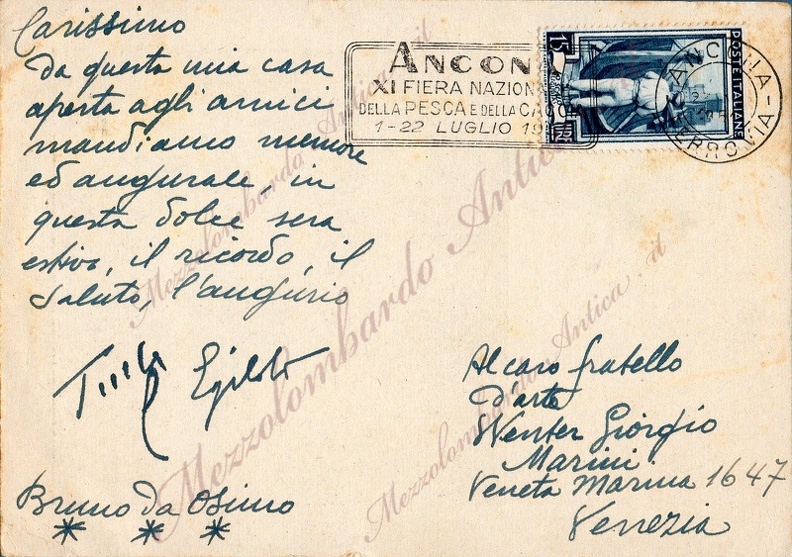 Carissimo
da questa mia casa
aperta agli amici
mandiamo memore
ed augurale, in
questa dolce sera
estiva, il ricordo, il
saluto, l'augurio
Bruno Da Osimo
Al caro fratello
d'arte
Wenter Giorgio
Marini
Veneta Marina 1647
Venezia
ANCON
XI FIERA NAZIONA
DELLA PESCA E DELLA CACC
1-22 LUGLIO 19
15
POSTE ITALIANE
ANC
FERROVIA
Mezzolombardo Antica.it
Mezzolombardo Antica.it
Mezzolombardo Antica.it